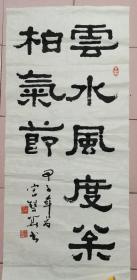 雲水風度枀
柏氣節
甲子年
书